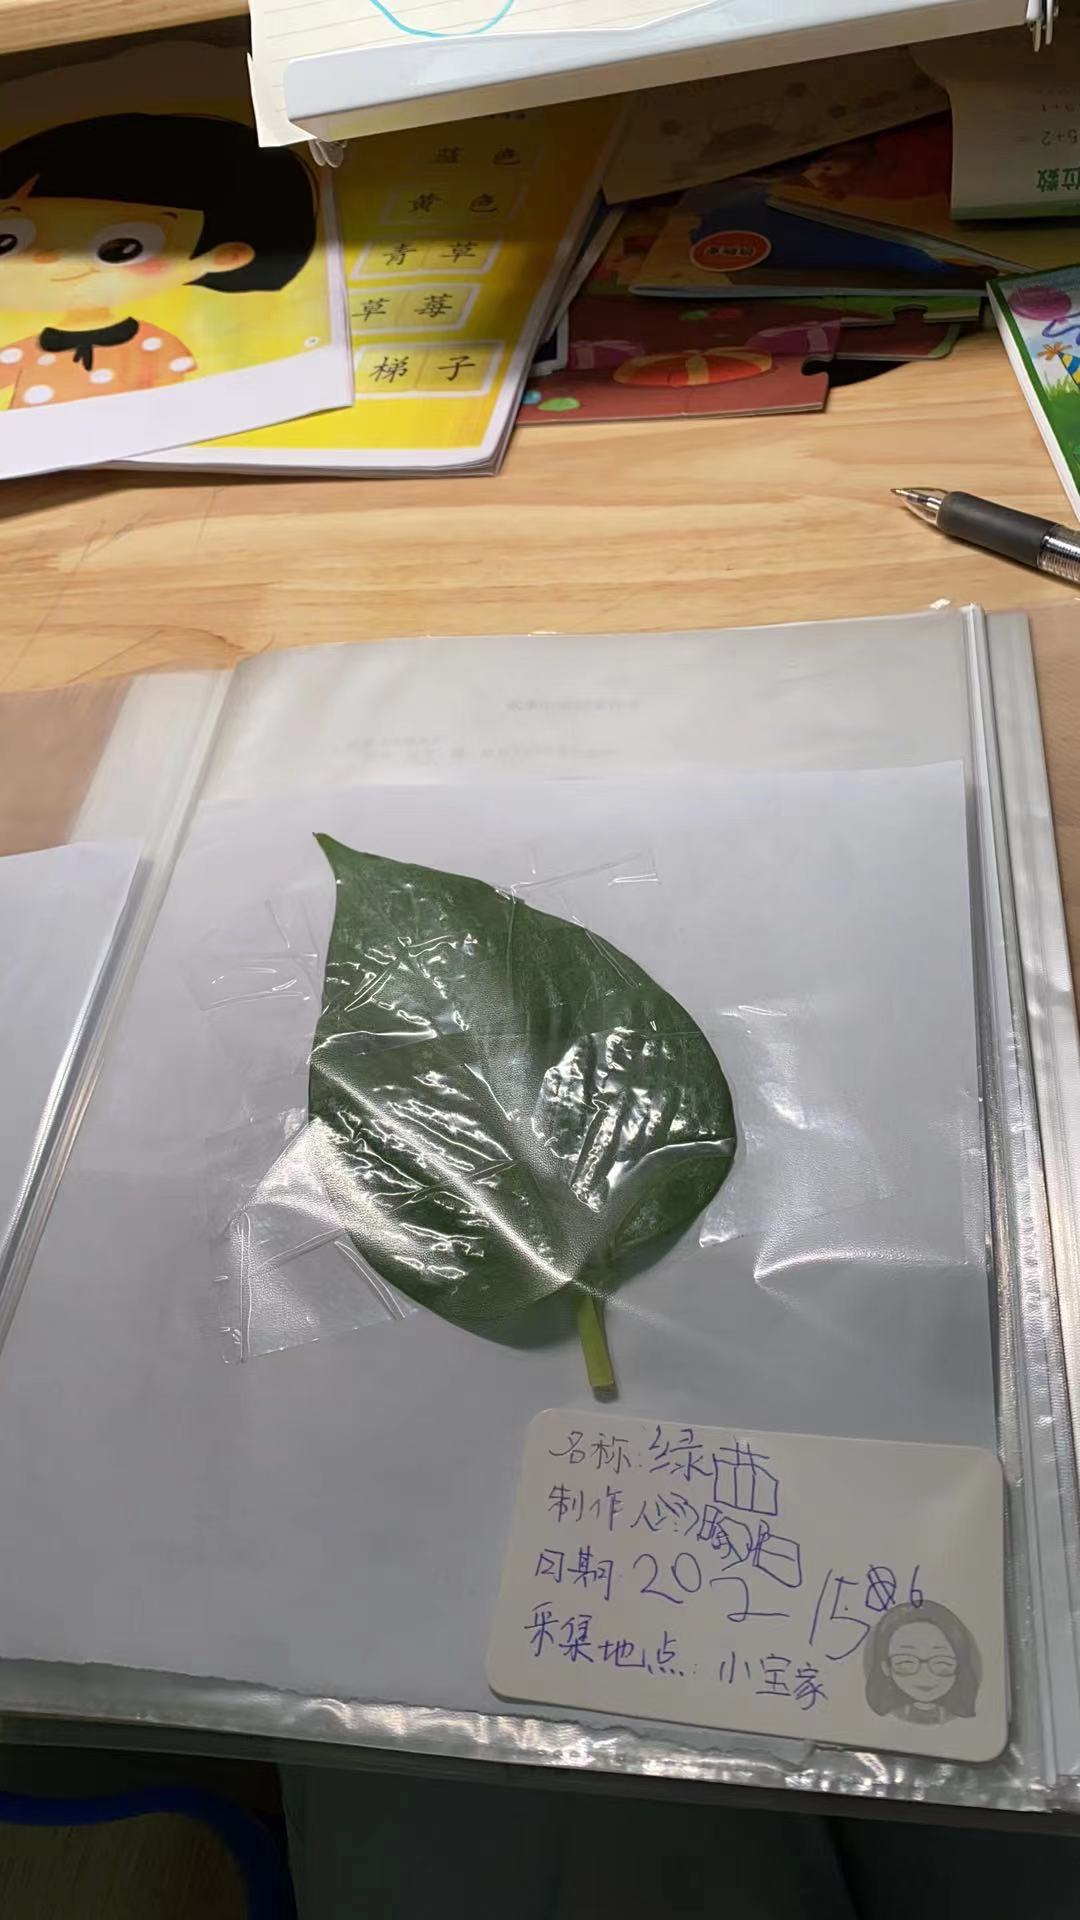 蓝色
黄色
青草
草莓
梯子
5+2=
位数
名称:绿
制作人
日期 202 15 6
采集地点:小宝家